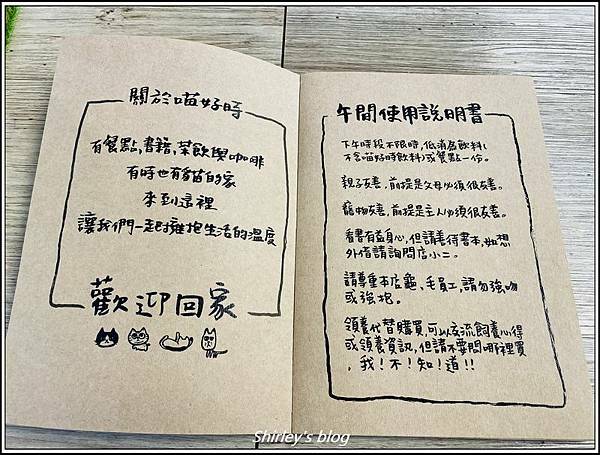 關於喵好時
有餐點,書籍,茶飲與咖啡
有時也有貓的家
來到這裡
讓我們一起擁抱生活的溫度
歡迎回家
午間使用說明書
下午時段不限時,低消為飲料(
不含喵好時飲料)或餐點一份。
親子友善,前提是父母必須很友善。
寵物友善,前提是主人必須很友善。
看書有益身心,但請善待書本,如想
外借請詢問店小二。
請尊重本店龜、毛員工,請勿強吻
或強抱。
領養代替購買,可以交流飼養心得
或領養資訊,但請不要問哪裡買
,我!不!知!道!!
Shirley's blog